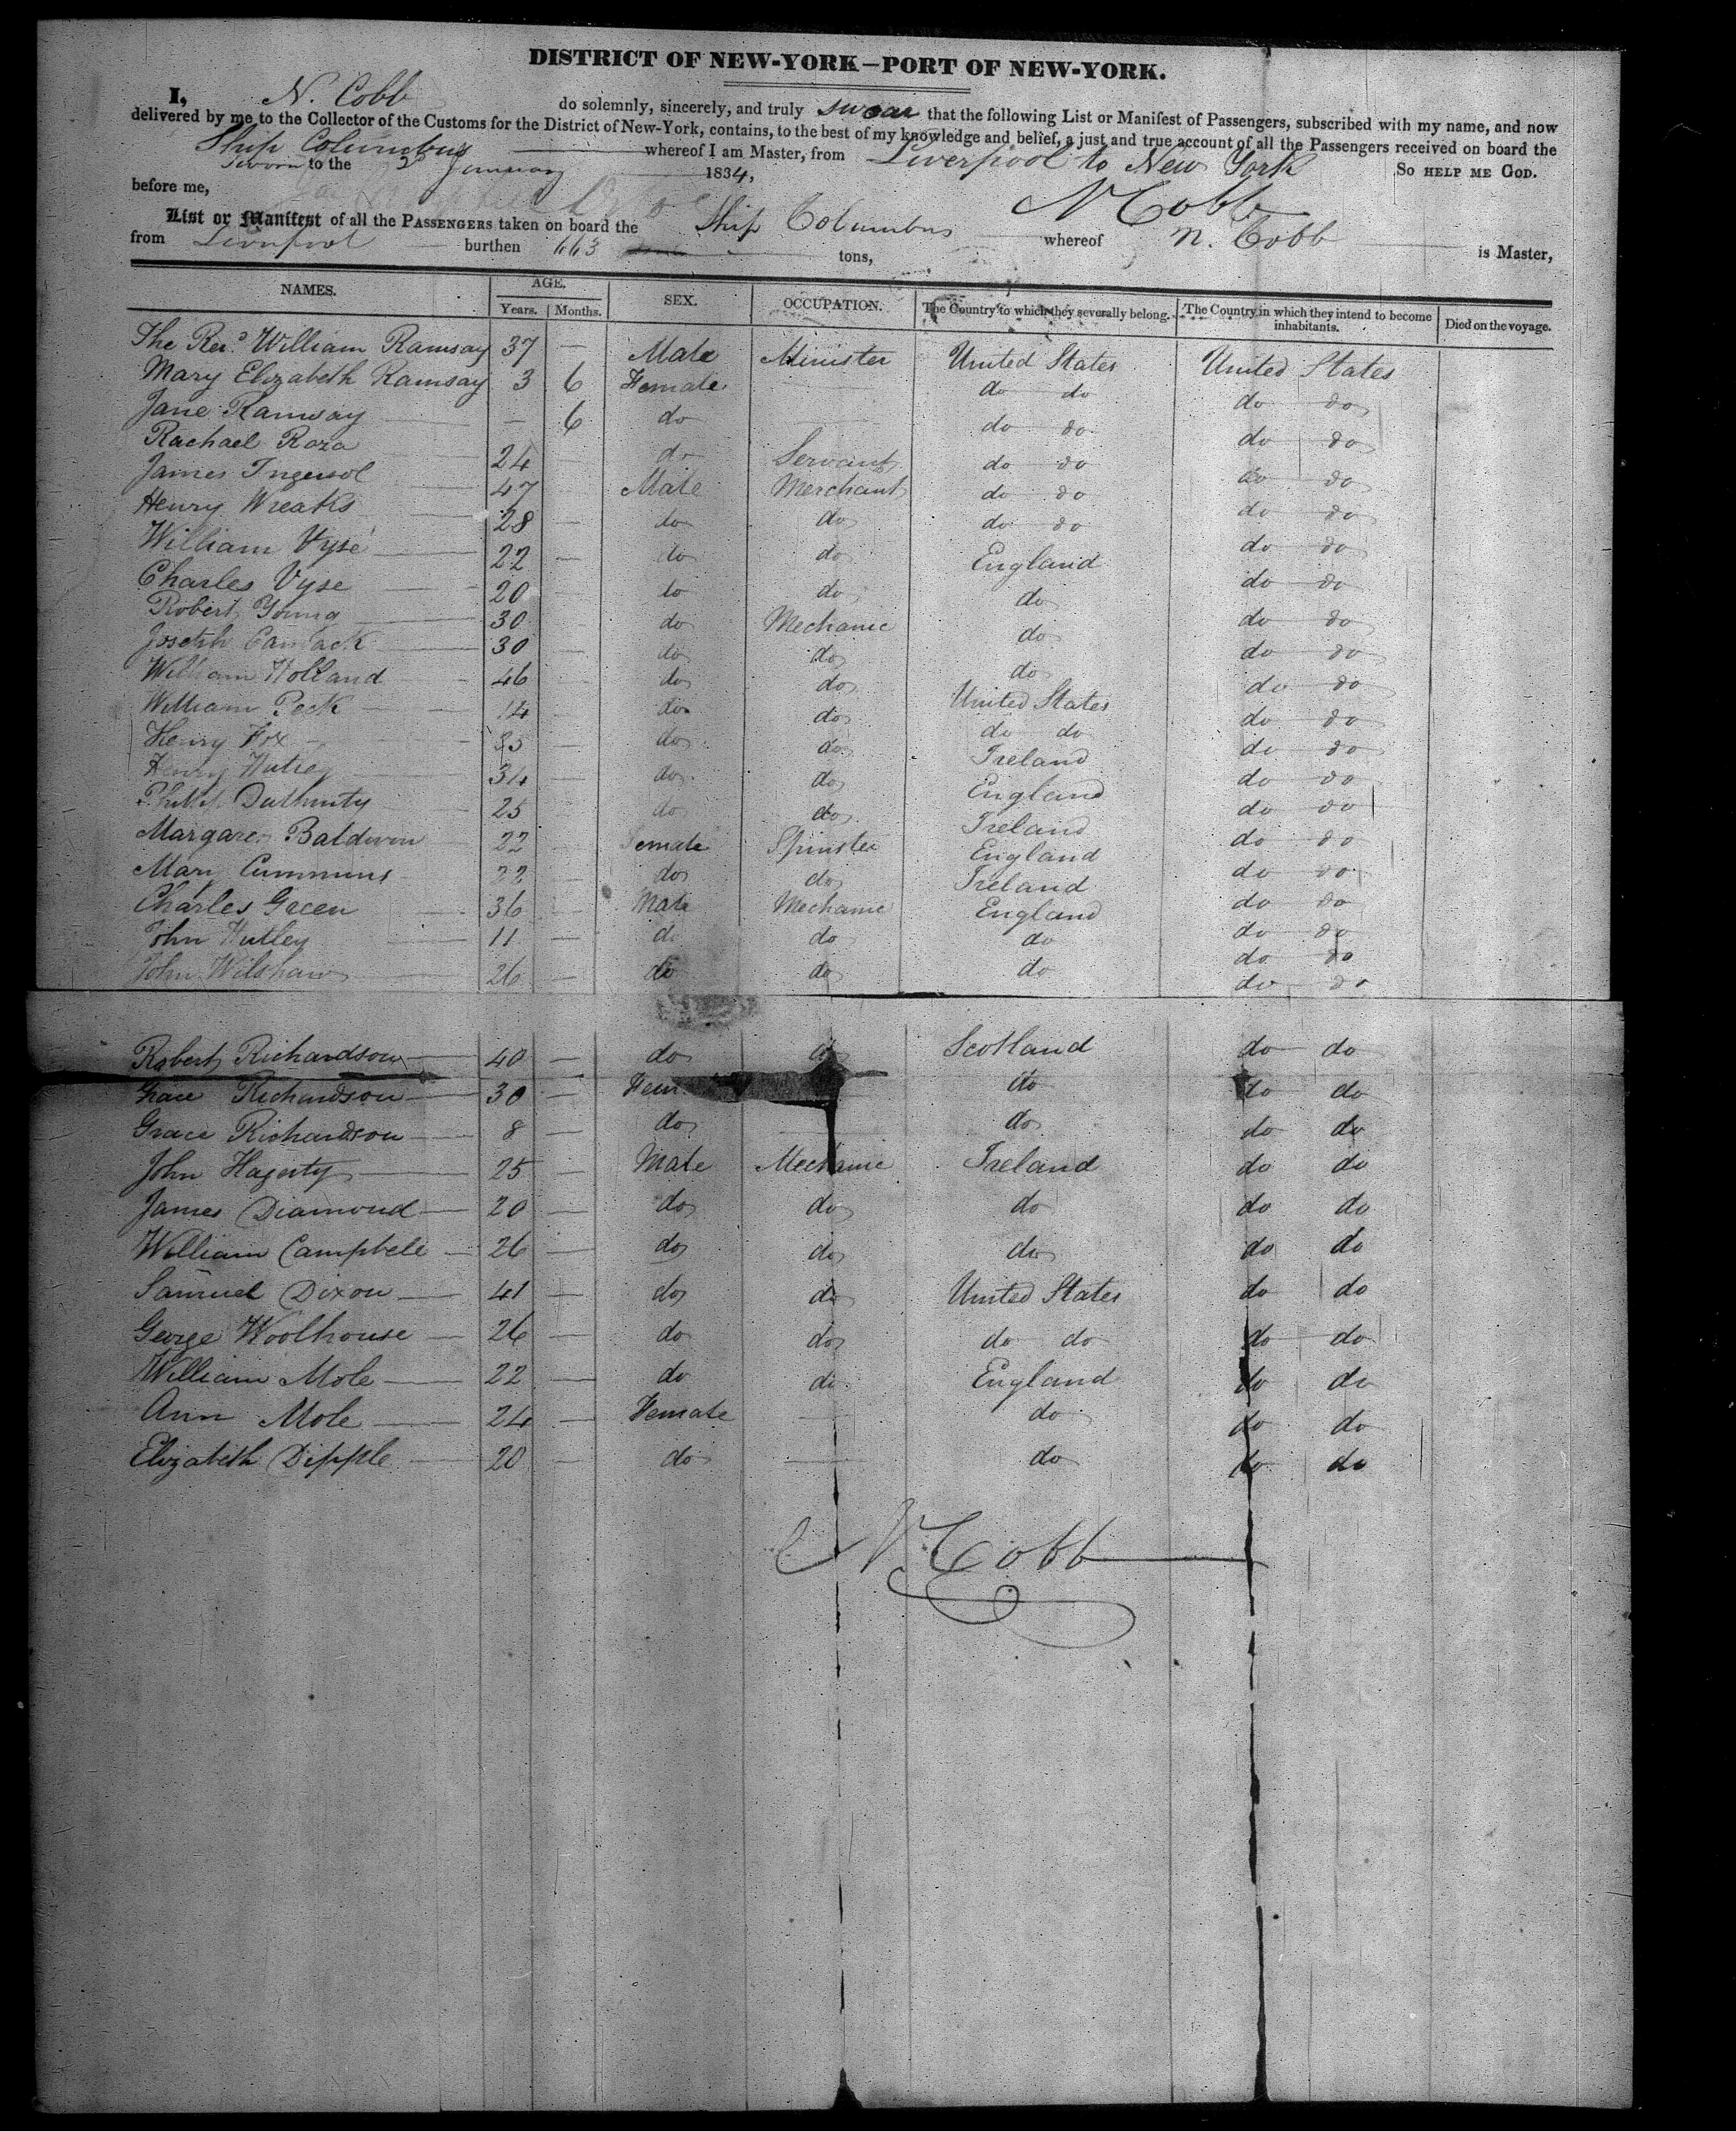 DISTRICT OF NEW-YORK—PORT OF NEW-YORK.
I, N. Cobb do solemnly, sincerely, and truly swear that the following List or Manifest of Passengers, subscribed with my name, and now
delivered by me to the Collector of the Customs for the District of New-York, contains, to the best of my knowledge and belief, a just and true account of all the Passengers received on board the
Ship Columbus whereof I am Master, from Liverpool to New York
Sworn to the 2 January 1834, So HELP ME GOD.
before me, N Cobb
List or Manifest of all the PASSENGERS taken on board the Ship Columbus whereof N. Cobb is Master,
from Liverpool burthen 663 tons,
NAMES. AGE. SEX. OCCUPATION. The Country to which they severally belong. The Country in which they intend to become inhabitants. Died on the voyage.
Years. Months.
The Revd. William Ramsay 37 — Male Minister United States United States
Mary Elizabeth Ramsay 3 6 Female do do do do
Jane Ramsay — 6 do do do do do
Rachael Roza 24 do Servant do do do do
James Ingersol 47 Male Merchant do do do do
Henry Wreaks 28 — do do do do do do
William Vyse 22 — do do England do do
Charles Vyse 20 do do do do do
Robert Young 30 do Mechanic do do do
Joseph 30 — do do do do do
William Holland 46 — do do United States do do
William Peck 14 — do do do do do do
Henry Fox 35 — do do Ireland do do
Henry 34 — do do England do do
25 — do do Ireland do do
Margaret Baldwin 22 — Female Spinster England do do
Mary Cummins 22 — do do Ireland do do
Charles Green 36 — Male Mechanic England do do
John Hutley 11 — do do do do do
John Wilshaw 26 — do do do do do
Robert Richardson 40 — do do Scotland do do
Grace Richardson 30 — Fem do do do
Grace Richardson 8 — do — do do do
John Hagerty 25 — Male Mechanic Ireland do do
James Diamond 20 — do do do do do
William Campbell 26 — do do do do do
Samuel Dixon 41 — do do United States do do
George Woolhouse 26 — do do do do do do
William Mole 22 — do do England do do
Ann Mole 24 — Female — do do do
Elizabeth Dipple 20 — do — do do do
N Cobb